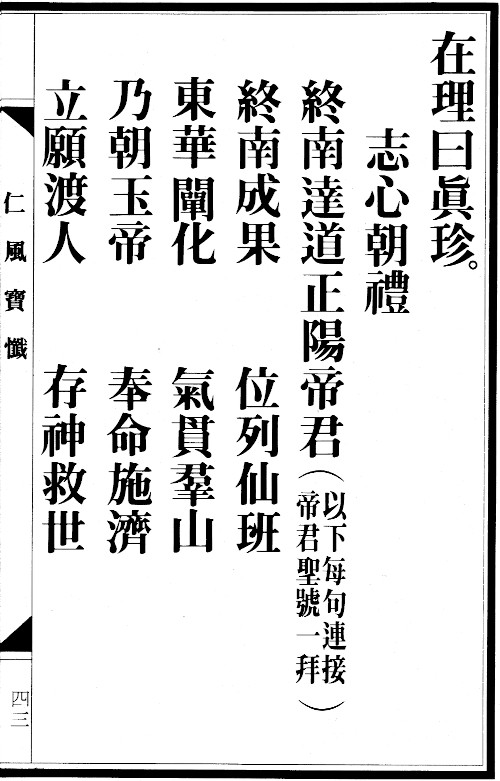 在理曰眞珍。
志心朝禮
終南達道正陽帝君（以下每句連接帝君聖號一拜）
終南成果　位列仙班
東華闡化　氣貫羣山
乃朝玉帝　奉命施濟
立願渡人　存神救世
仁風寶懺
四三